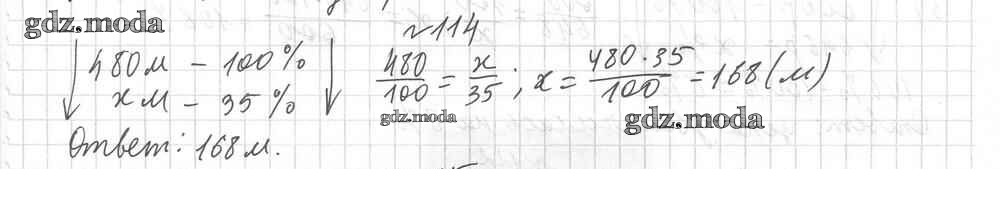 gdz.moda
№114
480 м – 100%
x м – 35%
480/100 = x/35; x = 480·35/100 = 168 (м)
gdz.moda
gdz.moda
Ответ: 168 м.